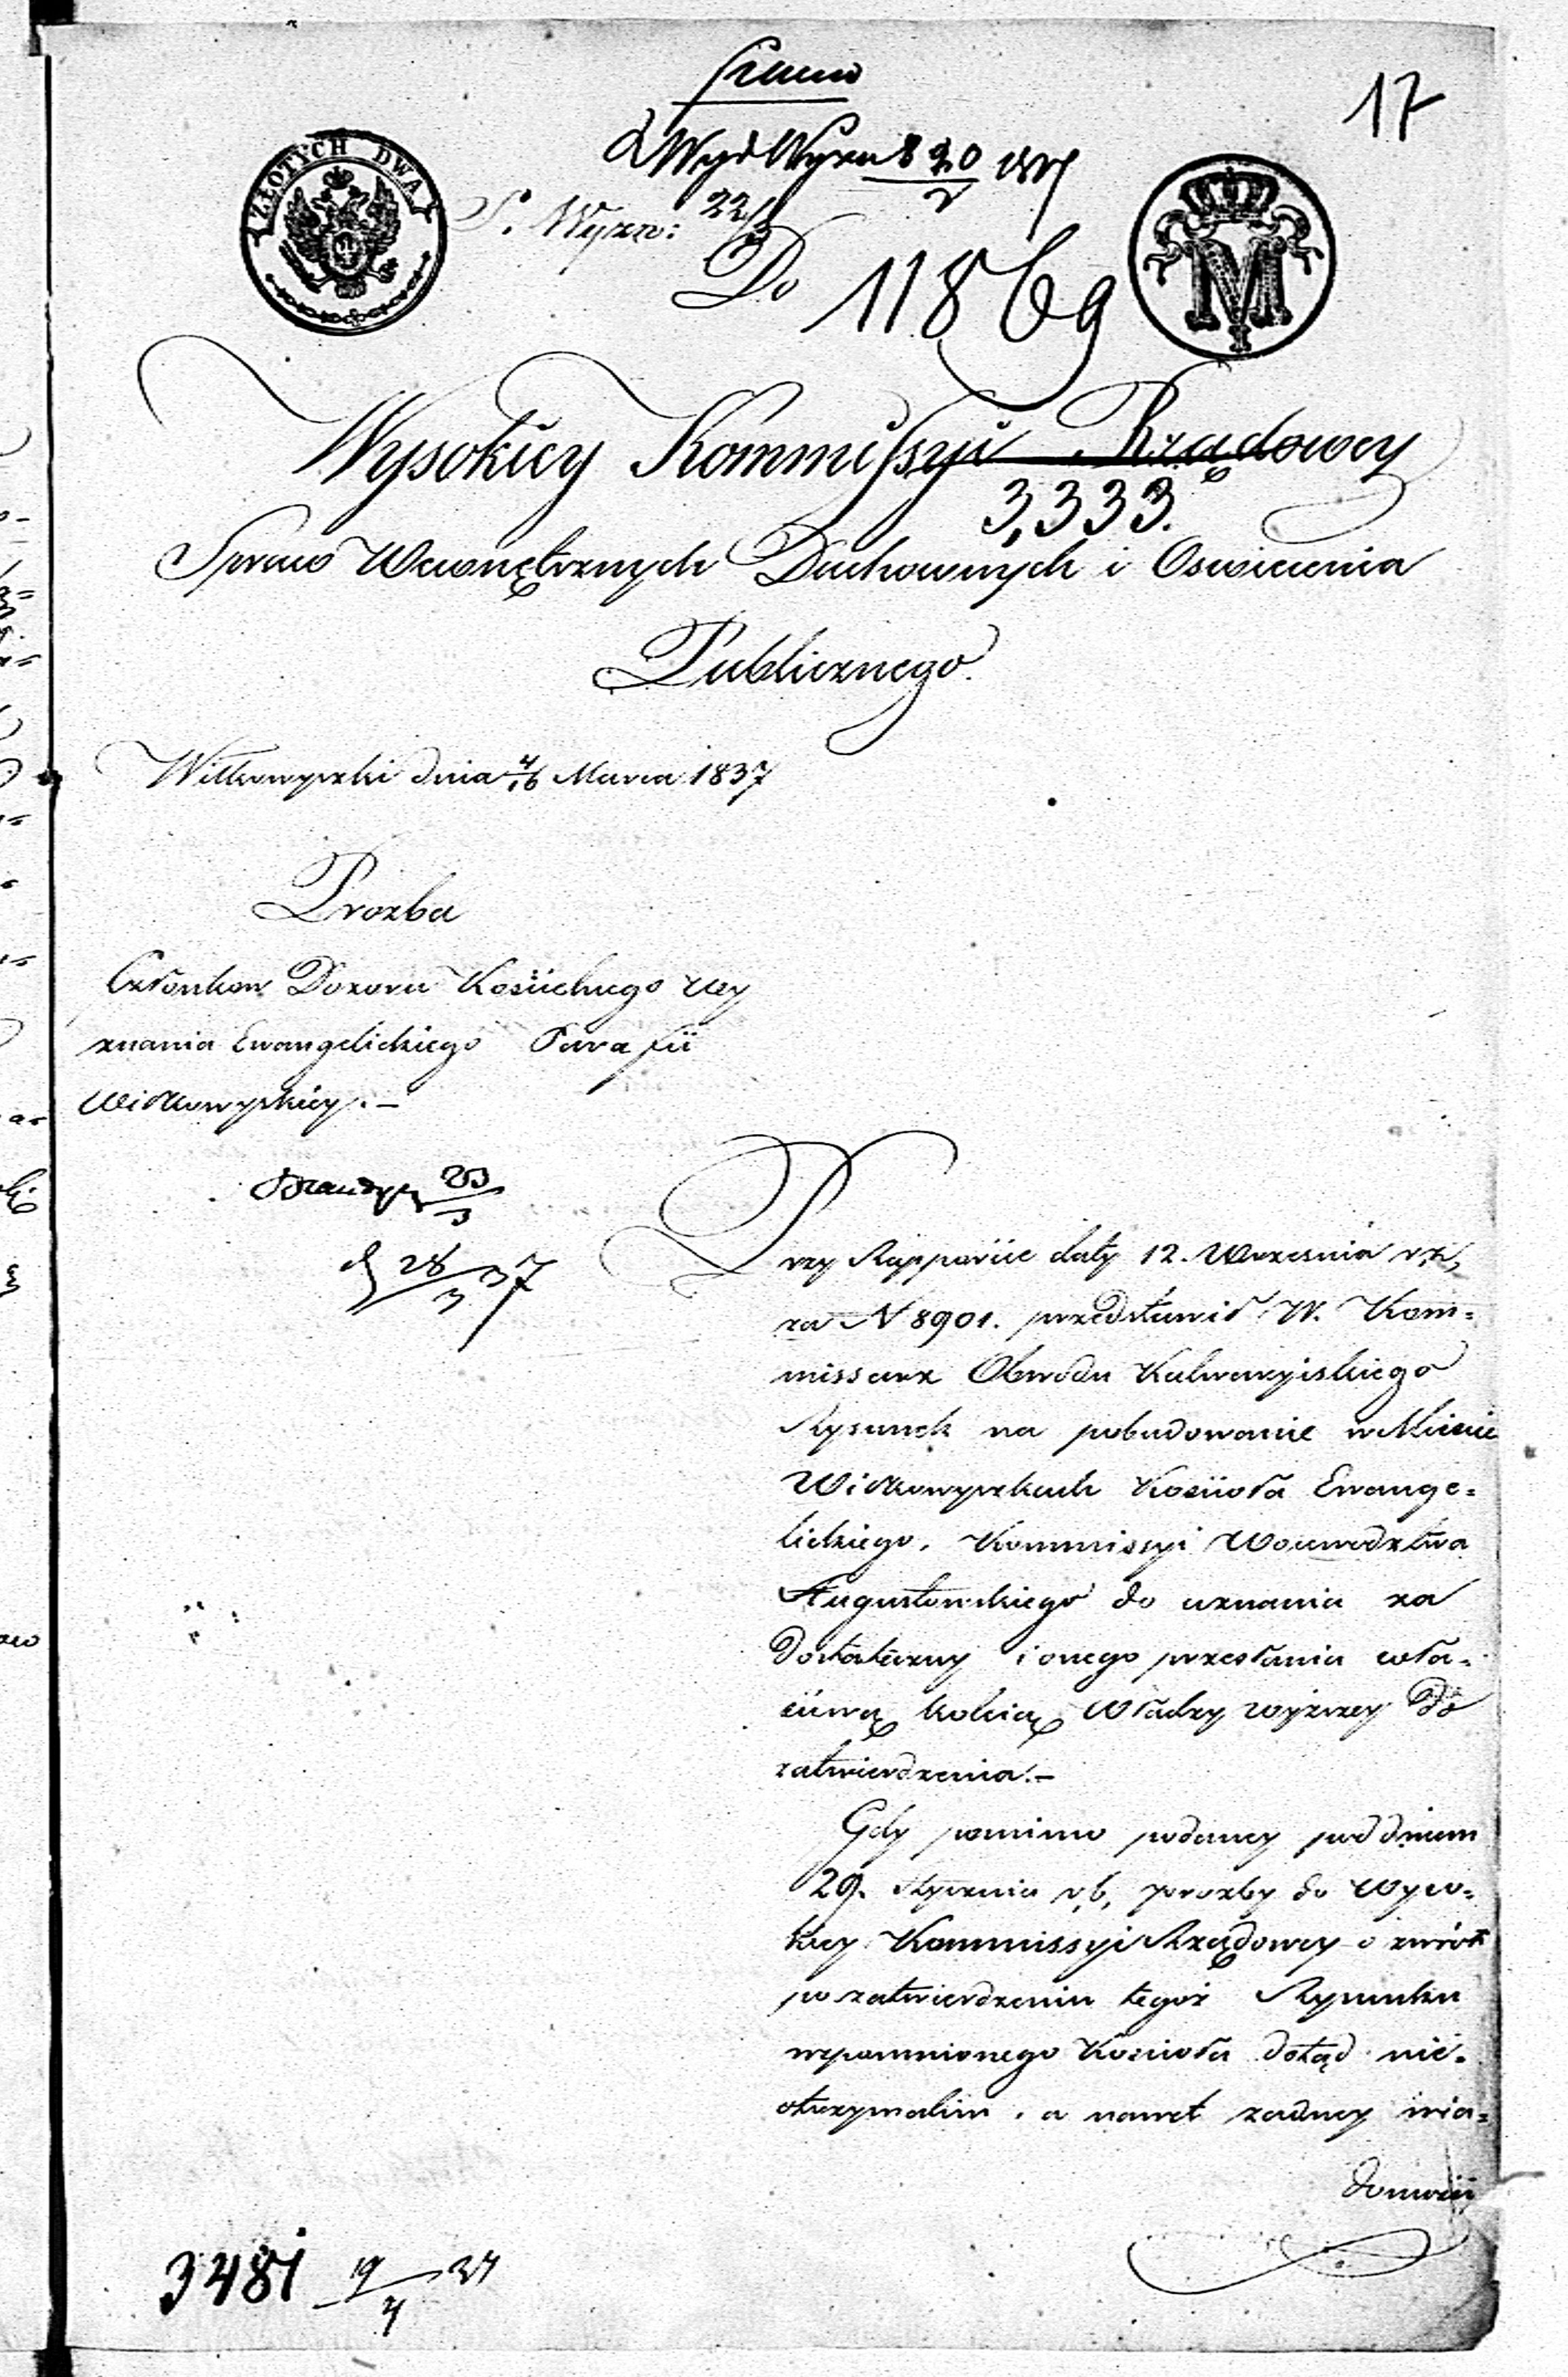 17
ZŁOTYCH DWA
M
Do 11869
Wysokiey Kommissyi Rządowey
3,333.
Spraw Wewnętrznych Duchownych i Oswiecenia
Publicznego.
Wiłkowyszki dnia 4/16 Marca 1837
Prozba
Członkow Dozoru Kościelnego wy
znania Ewangelickiego Parafii
Wiłkowyskiey. –
23/3
28/3 37
Przy Rapporcie daty 12. Wrzesnia r, z,
za N 8901. przedstawił W. Kom=
missarz Obwodu Kalwaryiskiego
Rysunek na pobudowanie w Miescie
Wiłkowyszkach Kościoła Ewange=
lickiego, Kommissyi Woiewodztwa
Augustowskiego do uznania za
dostateczny i onego przesłania wła=
ściwą koleią Władzy wyższey do
zatwierdzenia. –
Gdy pomimo podaney pod dniem
29. Stycznia r, b, prozby do Wyso=
kiey Kommissyi Rządowey o zwrót
po zatwierdzeniu tegoż Rysunku
wspomnionego Kościoła dotąd nie=
otrzymalim, a nawet zadney wia=
domości
3481 19/4 37